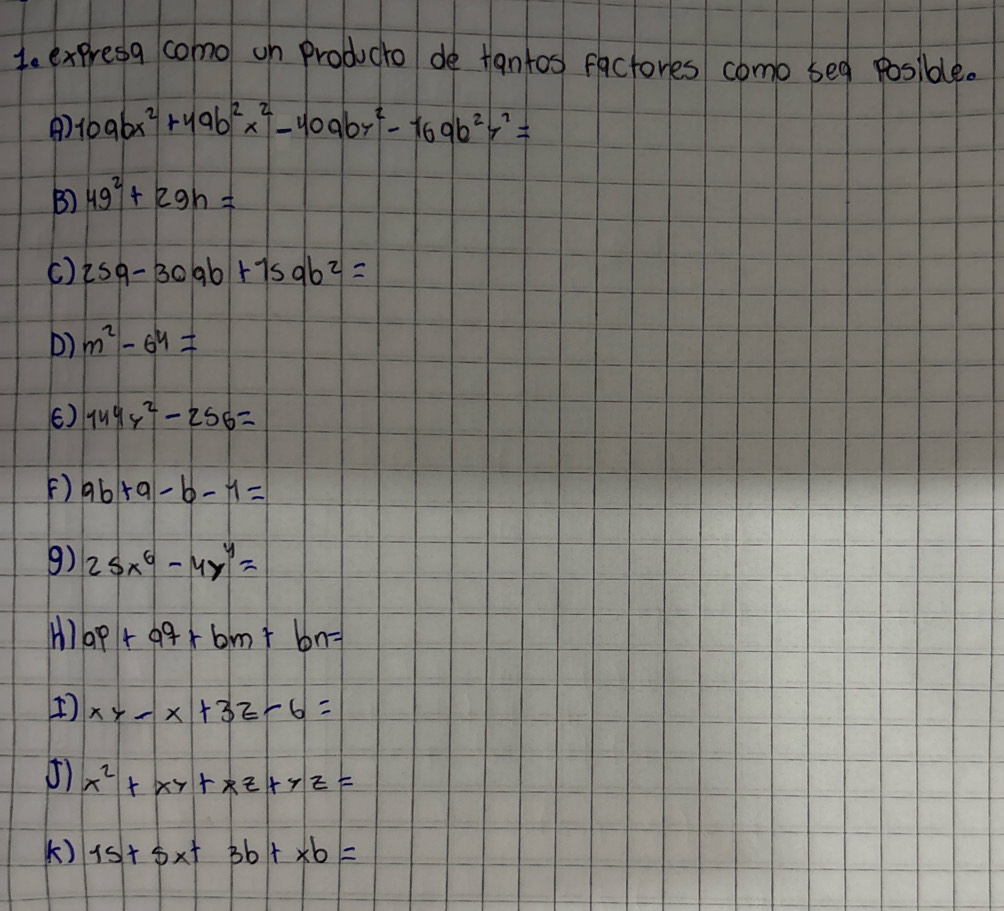 1. expresa como un producto de tantos factores como sea posible.
A) 10abx² + 4ab²x² - 40aby² - 16ab²y² =
B) 4g² + 2gh =
C) 25a - 30ab + 15ab² =
D) m² - 64 =
E) 144y² - 256 =
F) ab + a - b - 1 =
g) 25x⁶ - 4y⁴ =
H) ap + aq + bm + bn =
I) xy - x + 3z - 6 =
J) x² + xy + xz + yz =
K) 15 + 5x + 3b + xb =